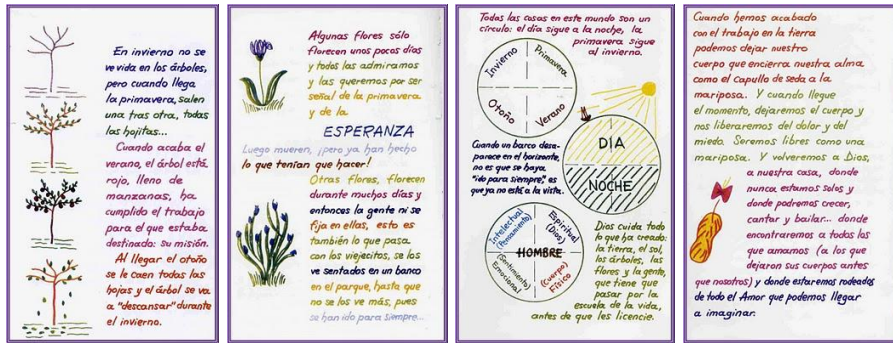 En invierno no se
ve vida en los árboles,
pero cuando llega
la primavera, salen
una tras otra, todas
las hojitas...
Cuando acaba el
verano, el árbol está
rojo, lleno de
manzanas, ha
cumplido el trabajo
para el que estaba
destinado: su misión.
Al llegar el otoño
se le caen todas las
hojas y el árbol se va
a "descansar" durante
el invierno.
Algunas flores sólo
florecen unos pocos días
y todos las admiramos
y las queremos por ser
señal de la primavera
y de la
ESPERANZA
Luego mueren, ¡pero ya han hecho
lo que tenían que hacer!
Otras flores, florecen
durante muchos días y
entonces la gente ni se
fija en ellas, esto es
también lo que pasa
con los viejecitos, se los
ve sentados en un banco
en el parque, hasta que
no se los ve más, pues
se han ido para siempre...
Todas las cosas en este mundo son un
círculo: el día sigue a la noche, la
primavera sigue
al invierno.
Invierno
Primavera
Otoño
Verano
Cuando un barco desa-
parece en el horizonte,
no es que se haya
"ido para siempre", es
que ya no está a la vista.
DIA
NOCHE
Intelectual
(Pensamiento)
Espiritual
(Dios)
HOMBRE
(Sentimiento)
Emocional
(Cuerpo)
Físico
Dios cuida todo
lo que ha creado:
la tierra, el sol,
los árboles, las
flores y la gente,
que tiene que
pasar por la
escuela de la vida,
antes de que les licencie.
Cuando hemos acabado
con el trabajo en la tierra
podemos dejar nuestro
cuerpo que encierra nuestra alma
como el capullo de seda a la
mariposa. Y cuando llegue
el momento, dejaremos el cuerpo y
nos liberaremos del dolor y del
miedo. Seremos libres como una
mariposa. Y volveremos a Dios,
a nuestra casa, donde
nunca estamos solos y
donde podremos crecer,
cantar y bailar... donde
encontraremos a todos los
que amamos (a los que
dejaron sus cuerpos antes
que nosotros) y donde estaremos rodeados
de todo el Amor que podemos llegar
a imaginar.